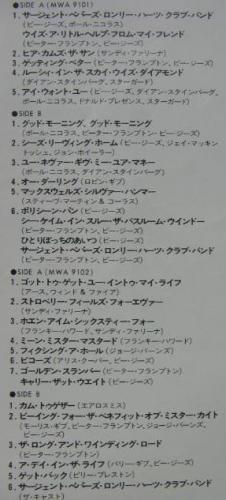 ●SIDE A (MWA 9101)
1. サージェント・ペパーズ・ロンリー・ハーツ・クラブ・バンド
(ビー・ジーズ、ポール・ニコラス)
ウイズ・ア・リトル・ヘルプ・フロム・マイ・フレンド
(ピーター・フランプトン、ビー・ジーズ)
2. ヒア・カムズ・ザ・サン (サンディ・ファリーナ)
3. ゲッティング・ベター (ピーター・フランプトン、ビー・ジーズ)
4. ルーシィ・イン・ザ・スカイ・ウイズ・ダイアモンド
(ダイアン・スタインバーグ、スターガード)
5. アイ・ウォント・ユー (ビー・ジーズ、ダイアン・スタインバーグ、
ポール・ニコラス、ドナルド・プレゼンス、スターガード)
●SIDE B
1. グッド・モーニング、グッド・モーニング
(ポール・ニコラス、ピーター・フランプトン・ビー・ジーズ)
2. シーズ・リーヴィング・ホーム (ビー・ジーズ、ジェイ・マッキン
トッシュ、ジョン・ホイーラー)
3. ユー・ネヴァー・ギヴ・ミー・ユア・マネー
(ポール・ニコラス、ダイアン・スタインバーグ)
4. オー・ダーリング (ロビン・ギブ)
5. マックスウェルズ・シルヴァー・ハンマー
(スティーヴ・マーティン & コーラス)
6. ポリシーン・パン (ビー・ジーズ)
シー・ケイム・イン・スルー・ザ・バスルーム・ウインドー
(ピーター・フランプトン、ビー・ジーズ)
ひとりぼっちのあいつ (ビー・ジーズ)
サージェント・ペパーズ・ロンリー・ハーツ・クラブ・バンド
(ピーター・フランプトン、ビー・ジーズ)
●SIDE A (MWA 9102)
1. ゴット・トゥ・ゲット・ユー・イントゥ・マイ・ライフ
(アース、ウィンド & ファイア)
2. ストロベリー・フィールズ・フォーエヴァー
(サンディ・ファリーナ)
3. ホエン・アイム・シックスティー・フォー
(フランキー・ハワード、サンディ・ファリーナ)
4. ミーン・ミスター・マスタード (フランキー・ハワード)
5. フィクシング・ア・ホール (ジョージ・バーンズ)
6. ビコーズ (アリス・クーパー、ビー・ジーズ)
7. ゴールデン・スランバー (ピーター・フランプトン)
キャリー・ザット・ウエイト (ビー・ジーズ)
●SIDE B
1. カム・トゥゲザー (エアロスミス)
2. ビーイング・フォー・ザ・ベネフィット・オブ・ミスター・カイト
(モーリス・ギブ、ピーター・フランプトン、ジョージ・バーンズ、
ビー・ジーズ)
3. ザ・ロング・アンド・ワインディング・ロード
(ピーター・フランプトン)
4. ア・デイ・イン・ザ・ライフ (バリー・ギブ、ビー・ジーズ)
5. ゲット・バック (ビリー・プレストン)
6. サージェント・ペパーズ・ロンリー・ハーツ・クラブ・バンド
(ザ・キャスト)